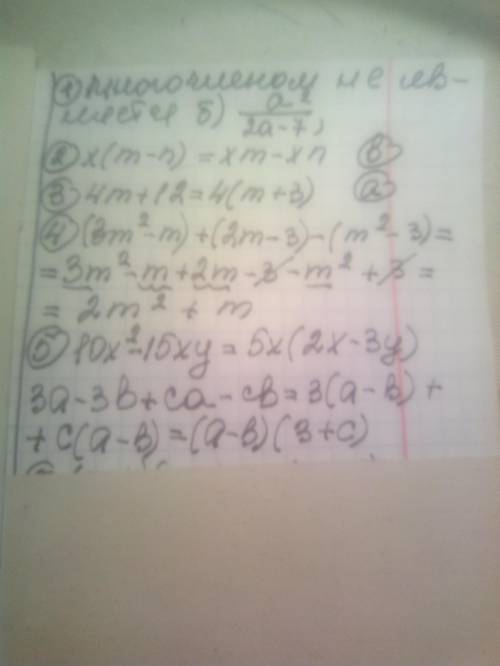 ① Многочленом не яв-
ляется б) a²/2a-7;
② x(m-n) = xm-xn в
③ 4m+12=4(m+3) а
④ (3m²-m)+(2m-3)-(m²-3)=
= 3m²-m+2m-3-m²+3=
= 2m² + m
⑤ 10x²-15xy = 5x(2x-3y)
3a-3b+ca-cb=3(a-b)+
+c(a-b)=(a-b)(3+c)